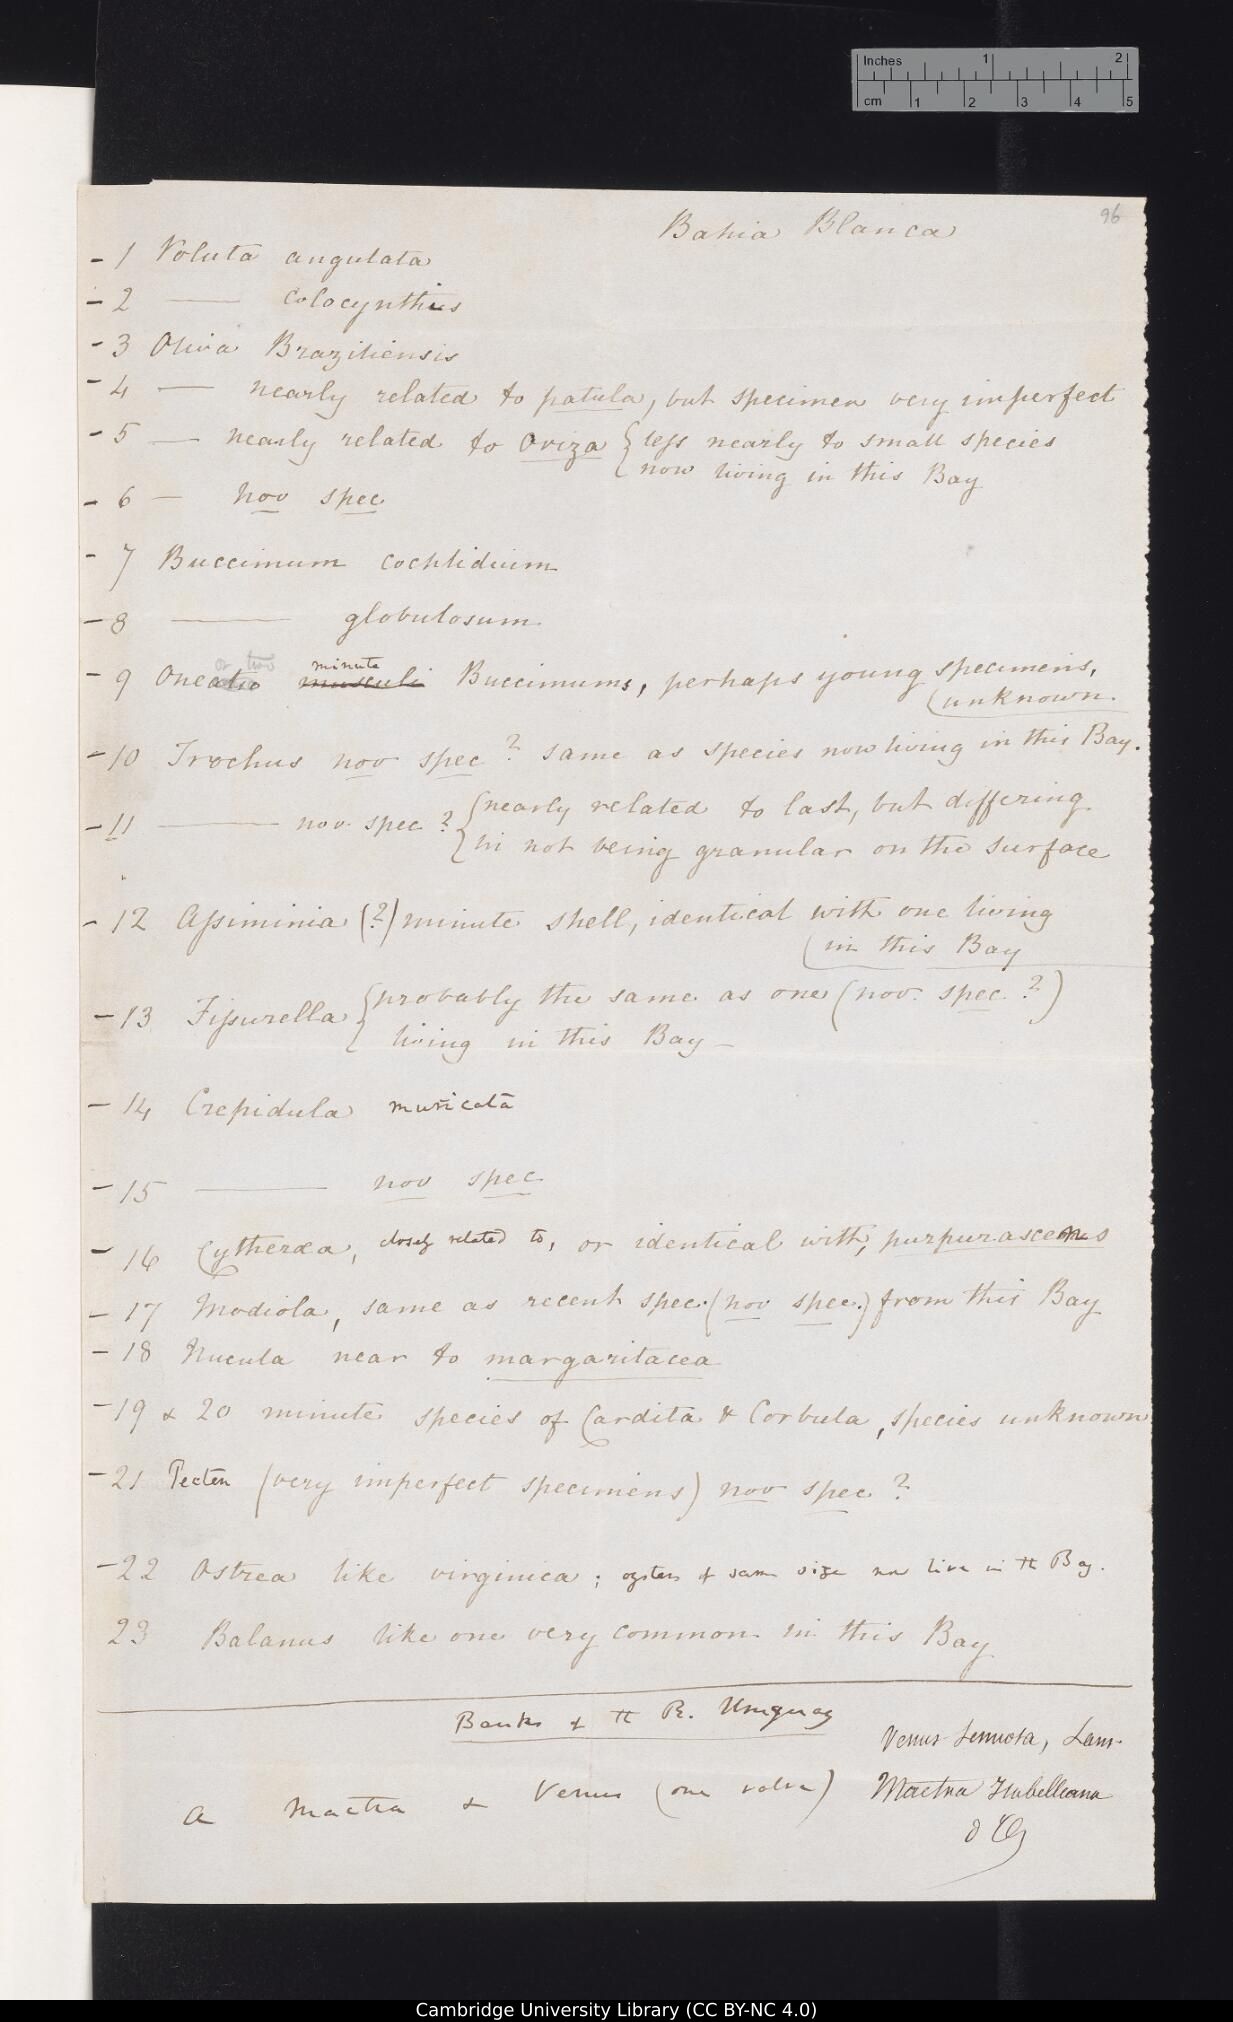 Inches 1 2
cm 1 2 3 4 5
96
Bahia Blanca
- 1 Voluta angulata
- 2 —— Colocynthis
- 3 Oliva Braziliensis
- 4 — nearly related to patula, but specimen very imperfect
- 5 — nearly related to Oriza { less nearly to small species
now living in this Bay
- 6 — nov spec
- 7 Buccinum cochlidium
- 8 —— globulosum
or two minute
- 9 One musculi Buccinums, perhaps young specimens,
(unknown.
- 10 Trochus nov spec? same as species now living in this Bay.
- 11 —— nov spec? { nearly related to last, but differing
in not being granular on the surface
- 12 Assiminia (?) minute shell, identical with one living
(in this Bay
- 13 Fissurella { probably the same as one (nov. spec.?)
living in this Bay —
- 14 Crepidula muricata
- 15 —— nov spec
- 16 Cytheræa, closely related to, or identical with, purpurascens
- 17 Modiola, same as recent spec. (nov spec.) from this Bay
- 18 Nucula near to margaritacea
- 19 & 20 minute species of Cardita & Corbula, species unknown
- 21 Pecten (very imperfect specimens) nov spec?
- 22 Ostrea like virginica; oysters of same size now live in the Bay.
23 Balanus like one very common in this Bay
Banks of the R. Uruguay
Venus sinuosa, Lam.
a Mactra & Venus (one valve) Mactra Isabelleana
d'O
Cambridge University Library (CC BY-NC 4.0)